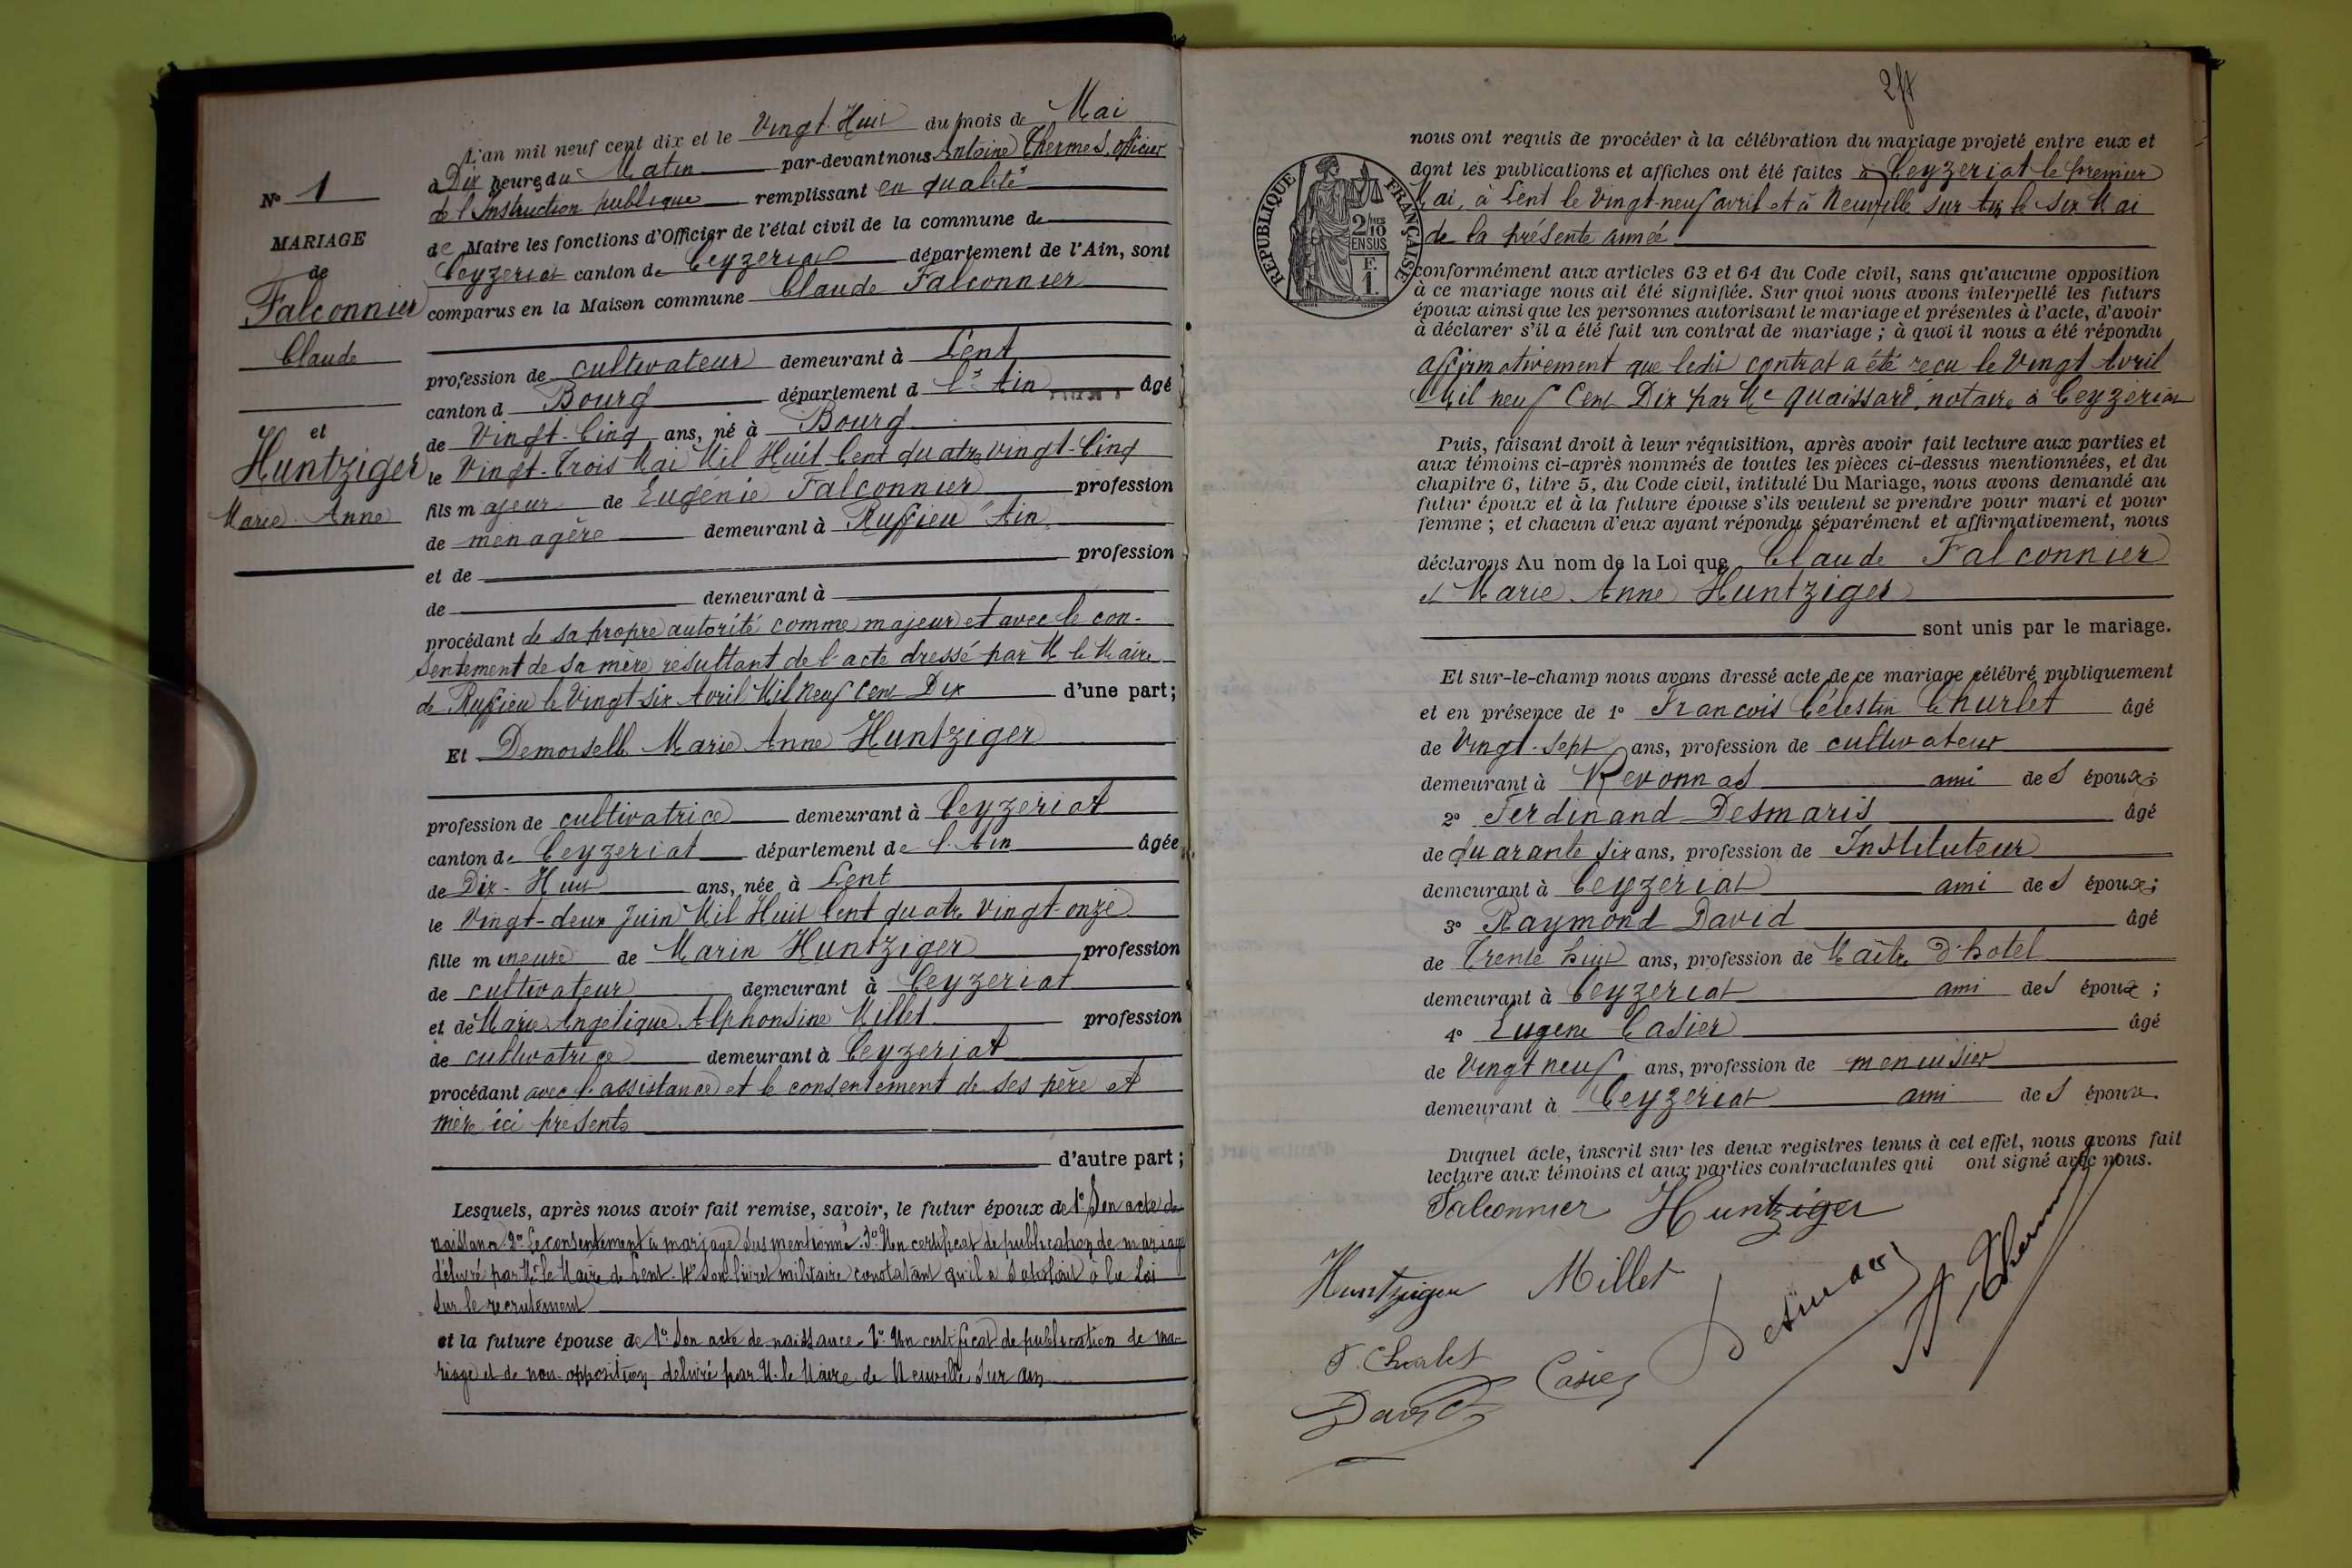 N° 1
MARIAGE
de
Falconnier
Claude
et
Huntziger
Marie Anne
L'an mil neuf cent dix et le Vingt-Huit du mois de Mai
à Dix heures du Matin par-devant nous Antoine Thermes, officier
de l'Instruction publique remplissant en qualité
de Maire les fonctions d'Officier de l'état civil de la commune de
Ceyzeriat canton de Ceyzeriat département de l'Ain, sont
comparus en la Maison commune Claude Falconnier
profession de cultivateur demeurant à Lent
canton d Bourg département d l'Ain âgé
de Vingt-Cinq ans, né à Bourg
le Vingt-Trois Mai Mil Huit Cent quatre vingt-Cinq
fils majeur de Eugénie Falconnier profession
de ménagère demeurant à Ruffieu Ain
et de profession
de demeurant à
procédant de sa propre autorité comme majeur et avec le con-
sentement de sa mère résultant de l'acte dressé par M. le Maire
de Ruffieu le Vingt-six Avril Mil Neuf Cent Dix d'une part;
Et Demoiselle Marie Anne Huntziger
profession de cultivatrice demeurant à Ceyzeriat
canton de Ceyzeriat département de l'Ain âgée
de Dix-Huit ans, née à Lent
le Vingt-deux Juin Mil Huit Cent quatre vingt-onze
fille mineure de Marin Huntziger profession
de cultivateur demeurant à Ceyzeriat
et de Marie Angélique Alphonsine Millet profession
de cultivatrice demeurant à Ceyzeriat
procédant avec l'assistance et le consentement de ses père et
mère ici présents
d'autre part;
Lesquels, après nous avoir fait remise, savoir, le futur époux de 1° Son acte de
naissance 2° Le consentement à mariage susmentionné. 3° Un certificat de publication de mariage
délivré par Mr le Maire de Lent. 4° Son livret militaire constatant qu'il a satisfait à la Loi
sur le recrutement
et la future épouse de 1° Son acte de naissance. 2° Un certificat de publication de ma-
riage et de non-opposition délivré par M. le Maire de Neuville sur ain
RÉPUBLIQUE FRANÇAISE
2/10
EN SUS
F.
1.
nous ont requis de procéder à la célébration du mariage projeté entre eux et
dont les publications et affiches ont été faites à Ceyzeriat le premier
Mai, à Lent le Vingt-neuf avril et à Neuville sur Ain le six Mai
de la présente année
conformément aux articles 63 et 64 du Code civil, sans qu'aucune opposition
à ce mariage nous ait été signifiée. Sur quoi nous avons interpellé les futurs
époux ainsi que les personnes autorisant le mariage et présentes à l'acte, d'avoir
à déclarer s'il a été fait un contrat de mariage ; à quoi il nous a été répondu
affirmativement que ledit contrat a été reçu le Vingt Avril
Mil neuf Cent Dix par Me Quaissard, notaire à Ceyzeriat
Puis, faisant droit à leur réquisition, après avoir fait lecture aux parties et
aux témoins ci-après nommés de toutes les pièces ci-dessus mentionnées, et du
chapitre 6, titre 5, du Code civil, intitulé Du Mariage, nous avons demandé au
futur époux et à la future épouse s'ils veulent se prendre pour mari et pour
femme ; et chacun d'eux ayant répondu séparément et affirmativement, nous
déclarons Au nom de la Loi que Claude Falconnier
et Marie Anne Huntziger
sont unis par le mariage.
Et sur-le-champ nous avons dressé acte de ce mariage célébré publiquement
et en présence de 1° Francois Célestin Churlet âgé
de Vingt-sept ans, profession de cultivateur
demeurant à Revonnas ami des époux;
2° Ferdinand Desmaris âgé
de quarante six ans, profession de Instituteur
demeurant à Ceyzeriat ami des époux;
3° Raymond David âgé
de Trente huit ans, profession de Maître d'hotel
demeurant à Ceyzeriat ami des époux;
4° Eugene Casier âgé
de Vingt neuf ans, profession de menuisier
demeurant à Ceyzeriat ami des époux.
Duquel acte, inscrit sur les deux registres tenus à cet effet, nous avons fait
lecture aux témoins et aux parties contractantes qui ont signé avec nous.
Falconnier Huntziger
Huntziger Millet
Desmaris A. Thermes
F. Churlet Casier
David